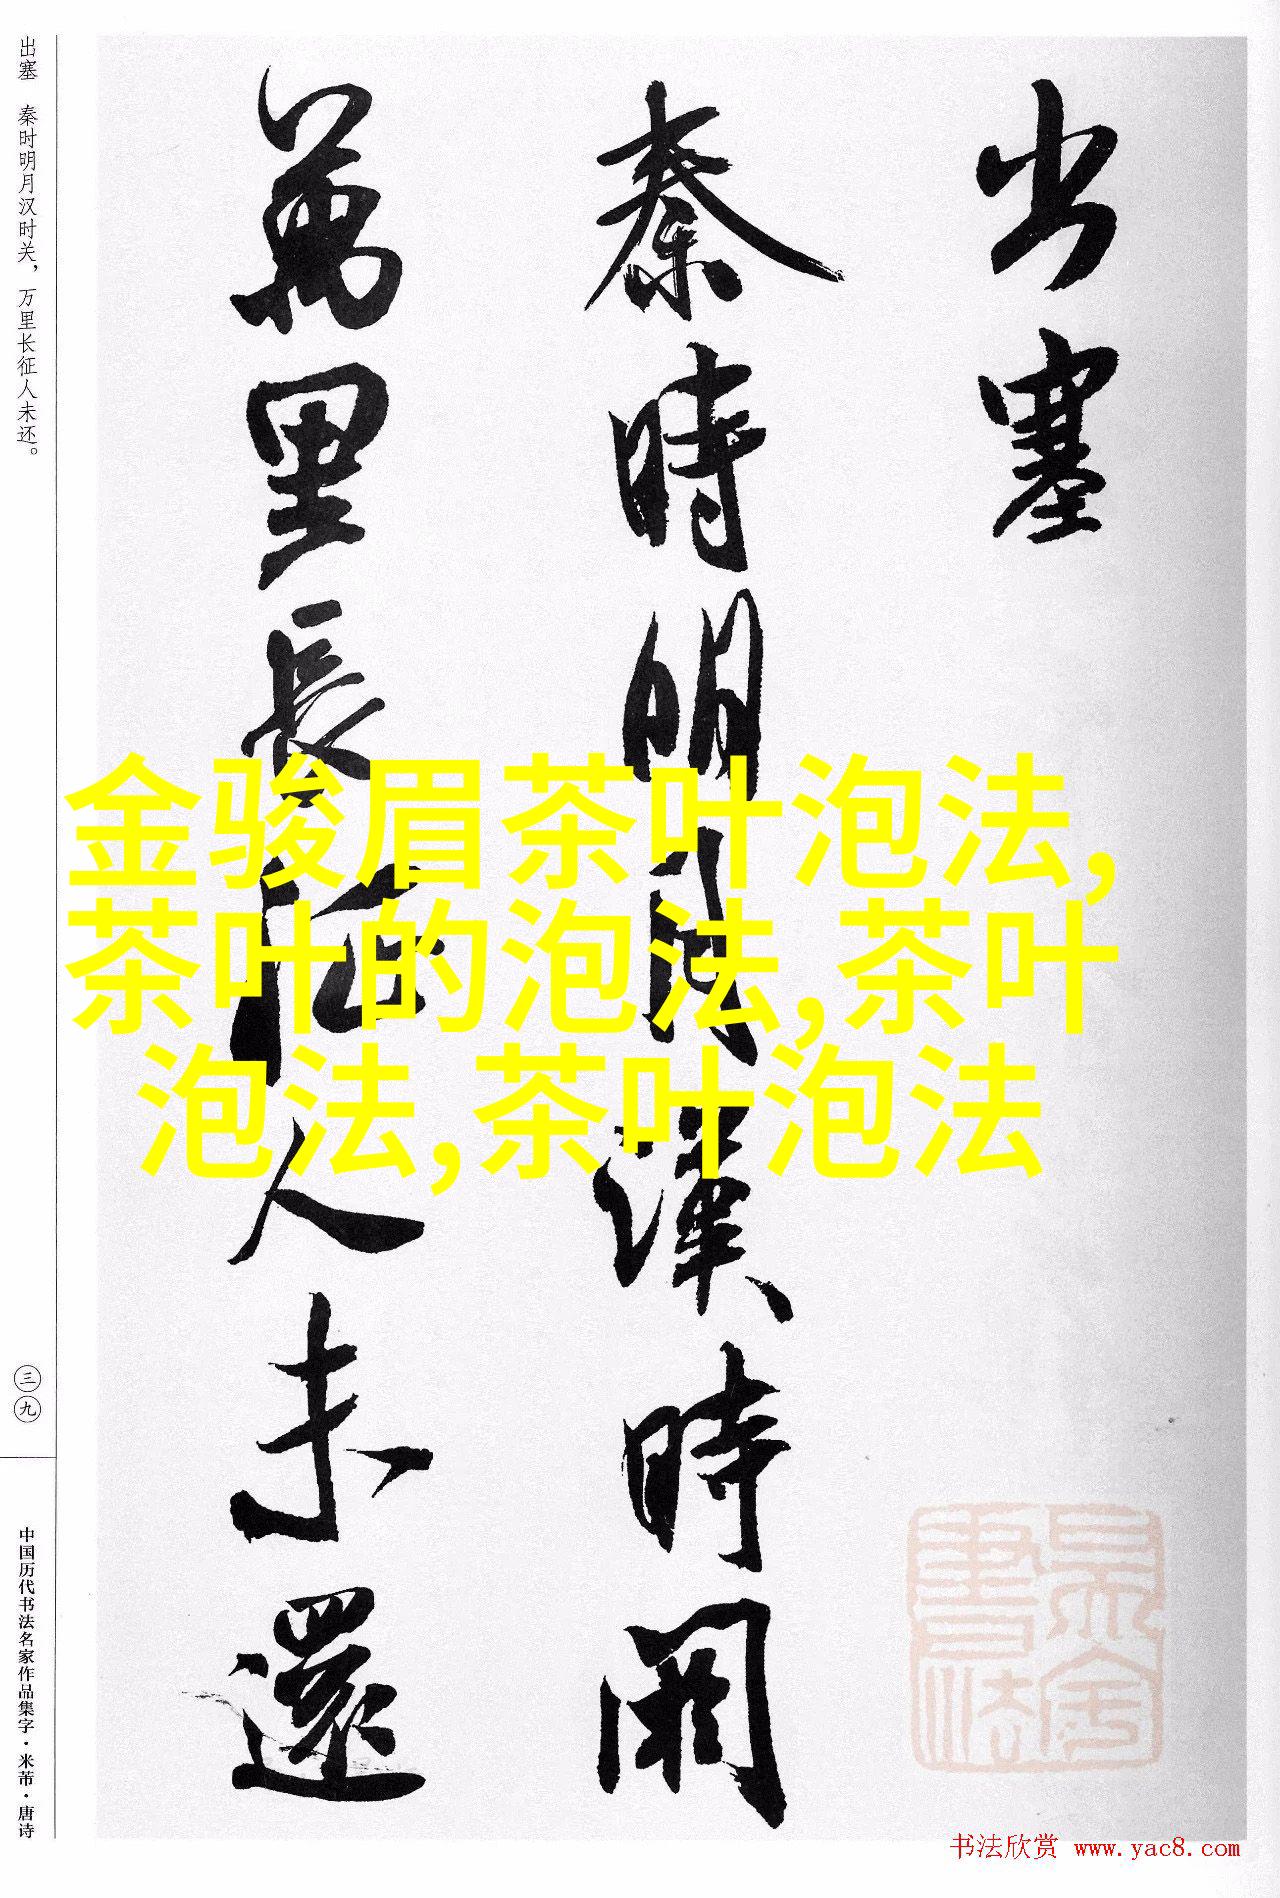 出塞
秦時明月漢時関
萬里長征人未還
金骏眉茶叶泡法,
茶叶的泡法,茶叶
泡法,茶叶泡法
出塞 秦时明月汉时关，万里长征人未还。
三九
中国历代书法名家作品集字·米芾·唐诗
书法欣赏 www.yac8.com